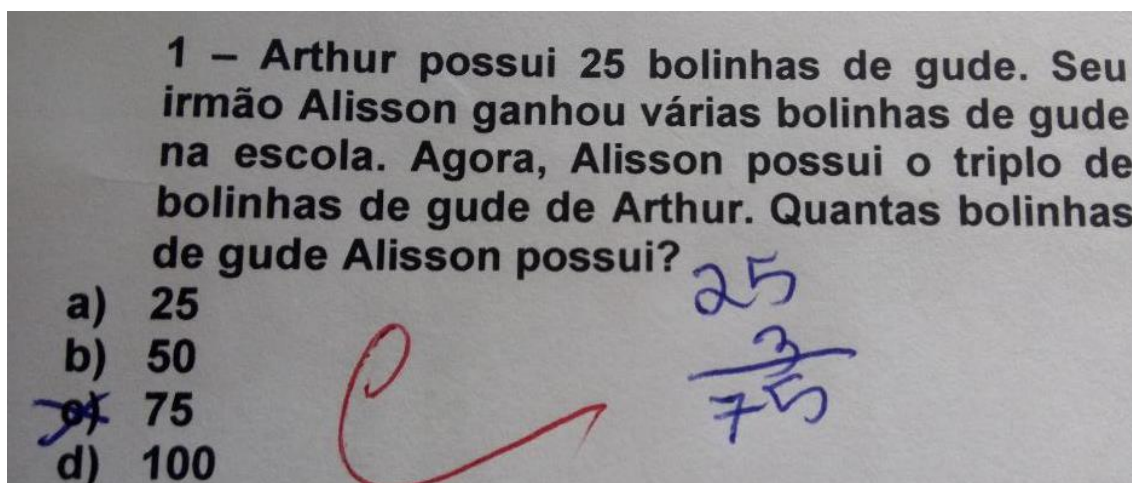 1 – Arthur possui 25 bolinhas de gude. Seu
irmão Alisson ganhou várias bolinhas de gude
na escola. Agora, Alisson possui o triplo de
bolinhas de gude de Arthur. Quantas bolinhas
de gude Alisson possui?
a) 25
b) 50
c) 75
d) 100
25
3
75